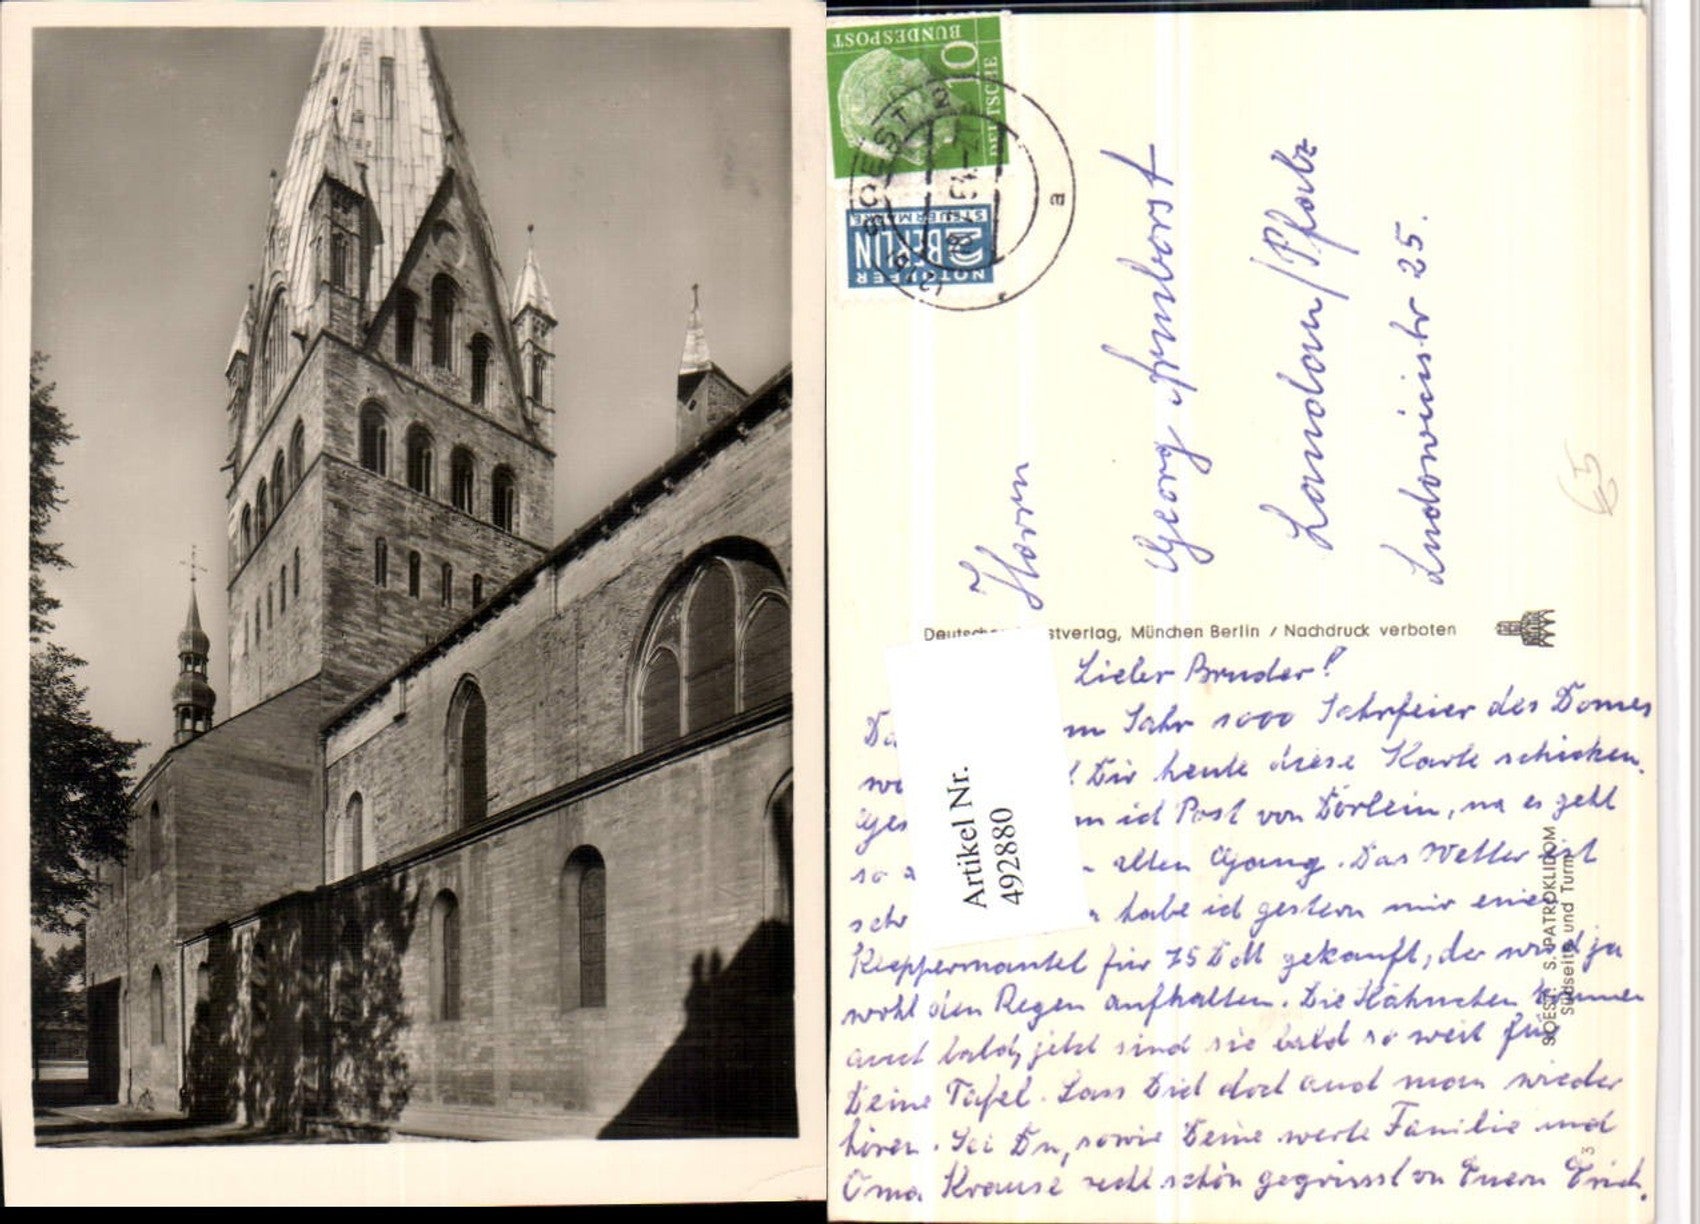 DEUTSCHE
BUNDESPOST
10
SOEST
NOTOPFER
2 BERLIN
STEUERMARKE
a
Herrn
Georg Armborst
Landau/Pfalz
Ludowicistr 25.
65
Deutscher stverlag, München Berlin / Nachdruck verboten
Lieber Bruder!
Da m Jahr 1000 Jahrfeier des Domes
wo Dir heute diese Karte schicken.
Ges ich Post von Dörlein, na es geht
so alten Gang. Das Wetter ist
sehr habe ich gestern mir einen
Kleppermantel für 75 DM gekauft, der wird ja
wohl den Regen aufhalten. Die Hähnchen kommen
auch bald, jetzt sind sie bald so weit für
Deine Tafel. Lass Dich doch auch mal wieder
hören. Sei Du, sowie Deine werte Familie und
Oma Krause recht schön gegrüsst von Euern Erich.
Artikel Nr.
492880
SOEST. S. PATROKLIDOM
Südseite und Turm